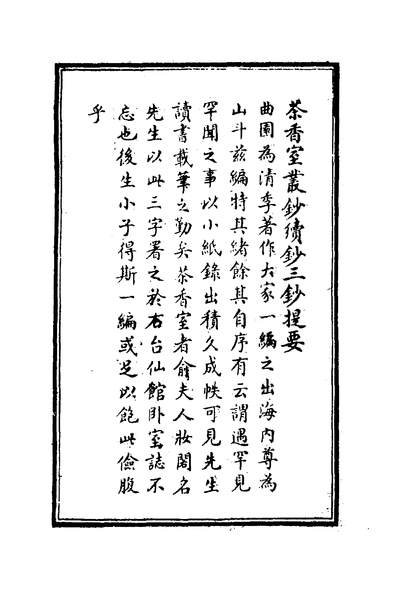 茶香室叢鈔續鈔三鈔提要
曲園為清季著作大家一編之出海內尊為
山斗茲編特其緒餘其自序有云謂遇罕見
罕聞之事以小紙錄出積久成帙可見先生
讀書載筆之勤矣茶香室者俞夫人妝閣名
先生以此三字署之於右台仙館卧室誌不
忘也後生小子得斯一編或足以飽此儉腹
乎